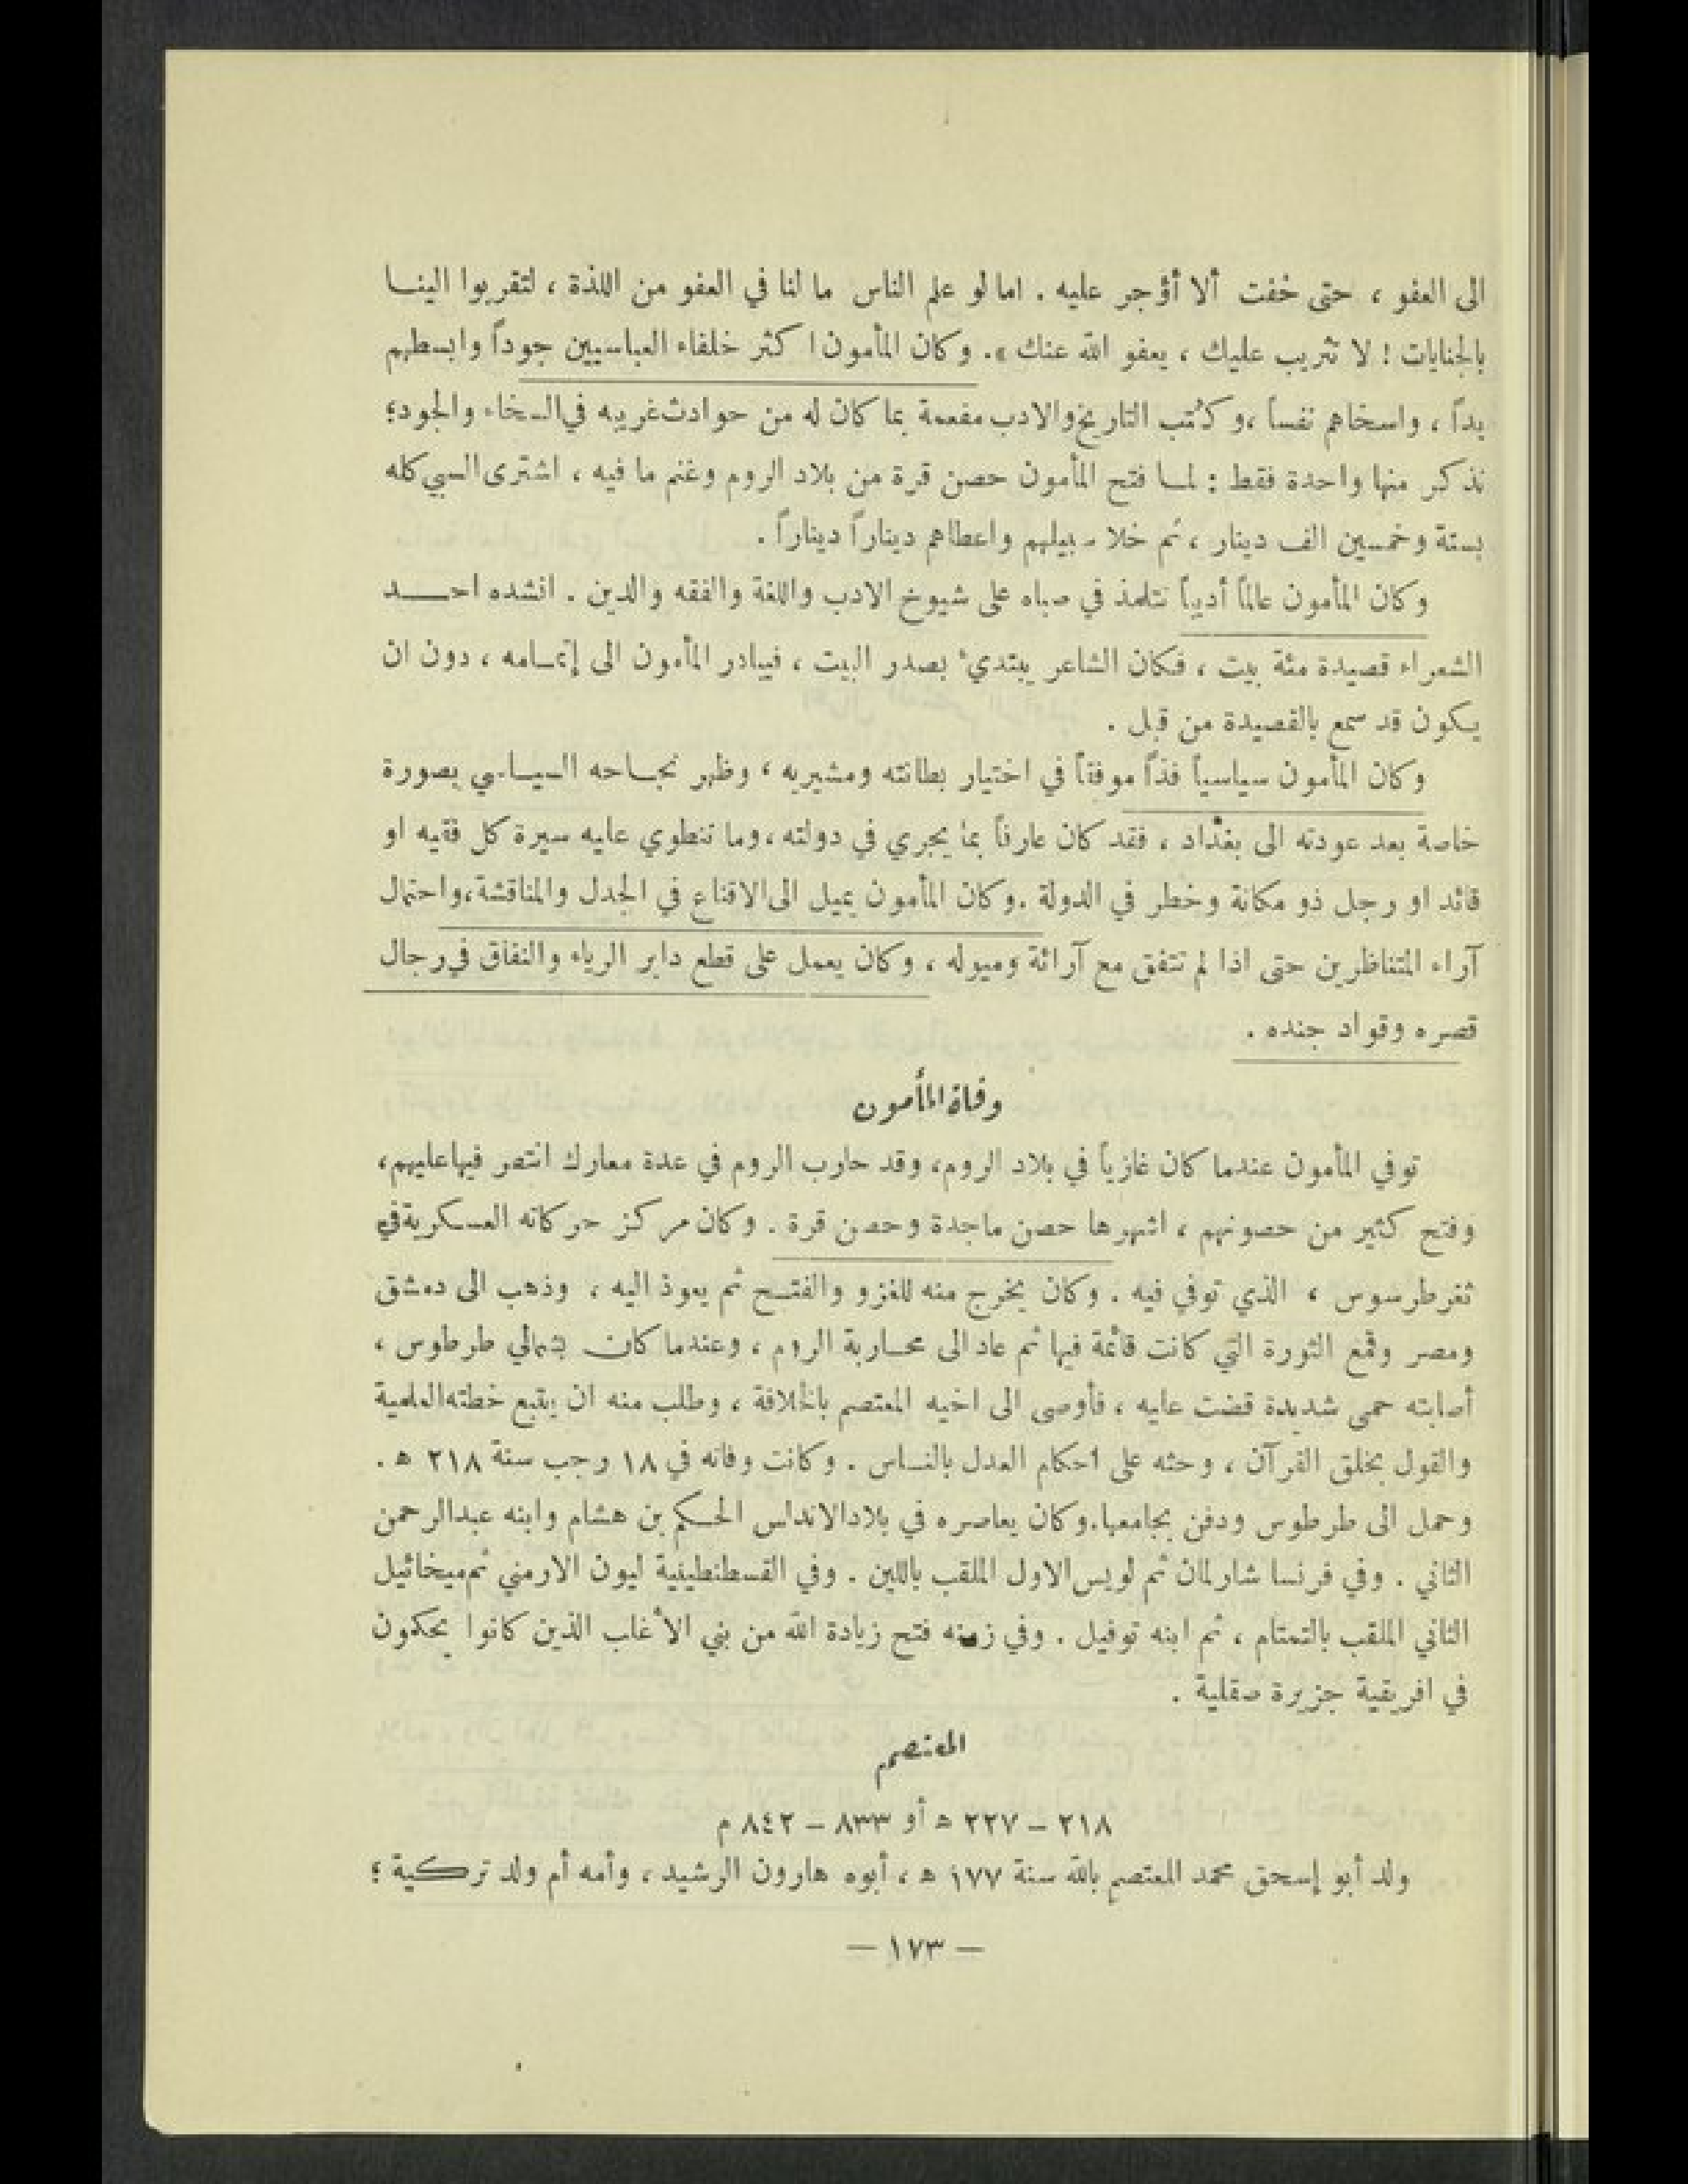 الى العفو ، حتى خفت ألا أؤجر عليه . اما لو علم الناس ما لنا في العفو من اللذة ، لتقربوا الينا
بالجنايات ! لا تثريب عليك ، يعفو الله عنك ». وكان المأمون اكثر خلفاء العباسيين جوداً وابسطهم
يداً ، واسخاهم نفساً ،و كتب التاريخ والادب مفعمة بما كان له من حوادث غريبه في السخاء والجود؛
نذكر منها واحدة فقط : لما فتح المأمون حصن قرة من بلاد الروم وغنم ما فيه ، اشترى السبي كله
بستة وخمسين الف دينار ، ثم خلا سبيلهم واعطاهم ديناراً ديناراً .
وكان المأمون عالماً أديباً تتلمذ في صباه على شيوخ الادب واللغة والفقه والدين . انشده احد
الشعراء قصيدة مئة بيت ، فكان الشاعر يبتديء بصدر البيت ، فيبادر المأمون الى إتمامه ، دون ان
يكون قد سمع بالقصيدة من قبل .
وكان المأمون سياسياً فذاً موفقاً في اختيار بطانته ومشيريه ، وظهر نجاحه السياسي بصورة
خاصة بعد عودته الى بغداد ، فقد كان عارفاً بما يجري في دولته ،وما تنطوي عليه سيرة كل فقيه او
قائد او رجل ذو مكانة وخطر في الدولة .وكان المأمون يميل الى الاقناع في الجدل والمناقشة،واحتمال
آراء المتناظرين حتى اذا لم تتفق مع آرائة وميوله ، وكان يعمل على قطع دابر الرياء والنفاق في رجال
قصره وقواد جنده .
وفاة المأمون
توفي المأمون عندما كان غازياً في بلاد الروم، وقد حارب الروم في عدة معارك انتصر فيها عليهم،
وفتح كثير من حصونهم ، اشهرها حصن ماجدة وحصن قرة . وكان مركز حركاته العسكرية في
ثغر طرسوس ، الذي توفي فيه . وكان يخرج منه للغزو والفتح ثم يعوذ اليه ، وذهب الى دمشق
ومصر وقمع الثورة التي كانت قائمة فيها ثم عاد الى محاربة الروم ، وعندما كان بشمالي طرطوس ،
أصابته حمى شديدة قضت عليه ، فأوصى الى اخيه المعتصم بالخلافة ، وطلب منه ان يتبع خطته العلمية
والقول بخلق القرآن ، وحثه على احكام العدل بالناس . وكانت وفاته في ١٨ رجب سنة ٢١٨ ه .
وحمل الى طرطوس ودفن بجامعها.وكان يعاصره في بلاد الاندلس الحكم بن هشام وابنه عبدالرحمن
الثاني . وفي فرنسا شارلمان ثم لويس الاول الملقب باللين . وفي القسطنطينية ليون الارمني ثم ميخائيل
الثاني الملقب بالتمتام ، ثم ابنه توفيل . وفي زمنه فتح زيادة الله من بني الأغلب الذين كانوا يحكمون
في افريقية جزيرة صقلية .
المعتصم
٢١٨ – ٢٢٧ ه أو ٨٣٣ – ٨٤٢ م
ولد أبو إسحق محمد المعتصم بالله سنة ١٧٧ ه ، أبوه هارون الرشيد ، وأمه أم ولد تركية ؛
— ١٧٣ —